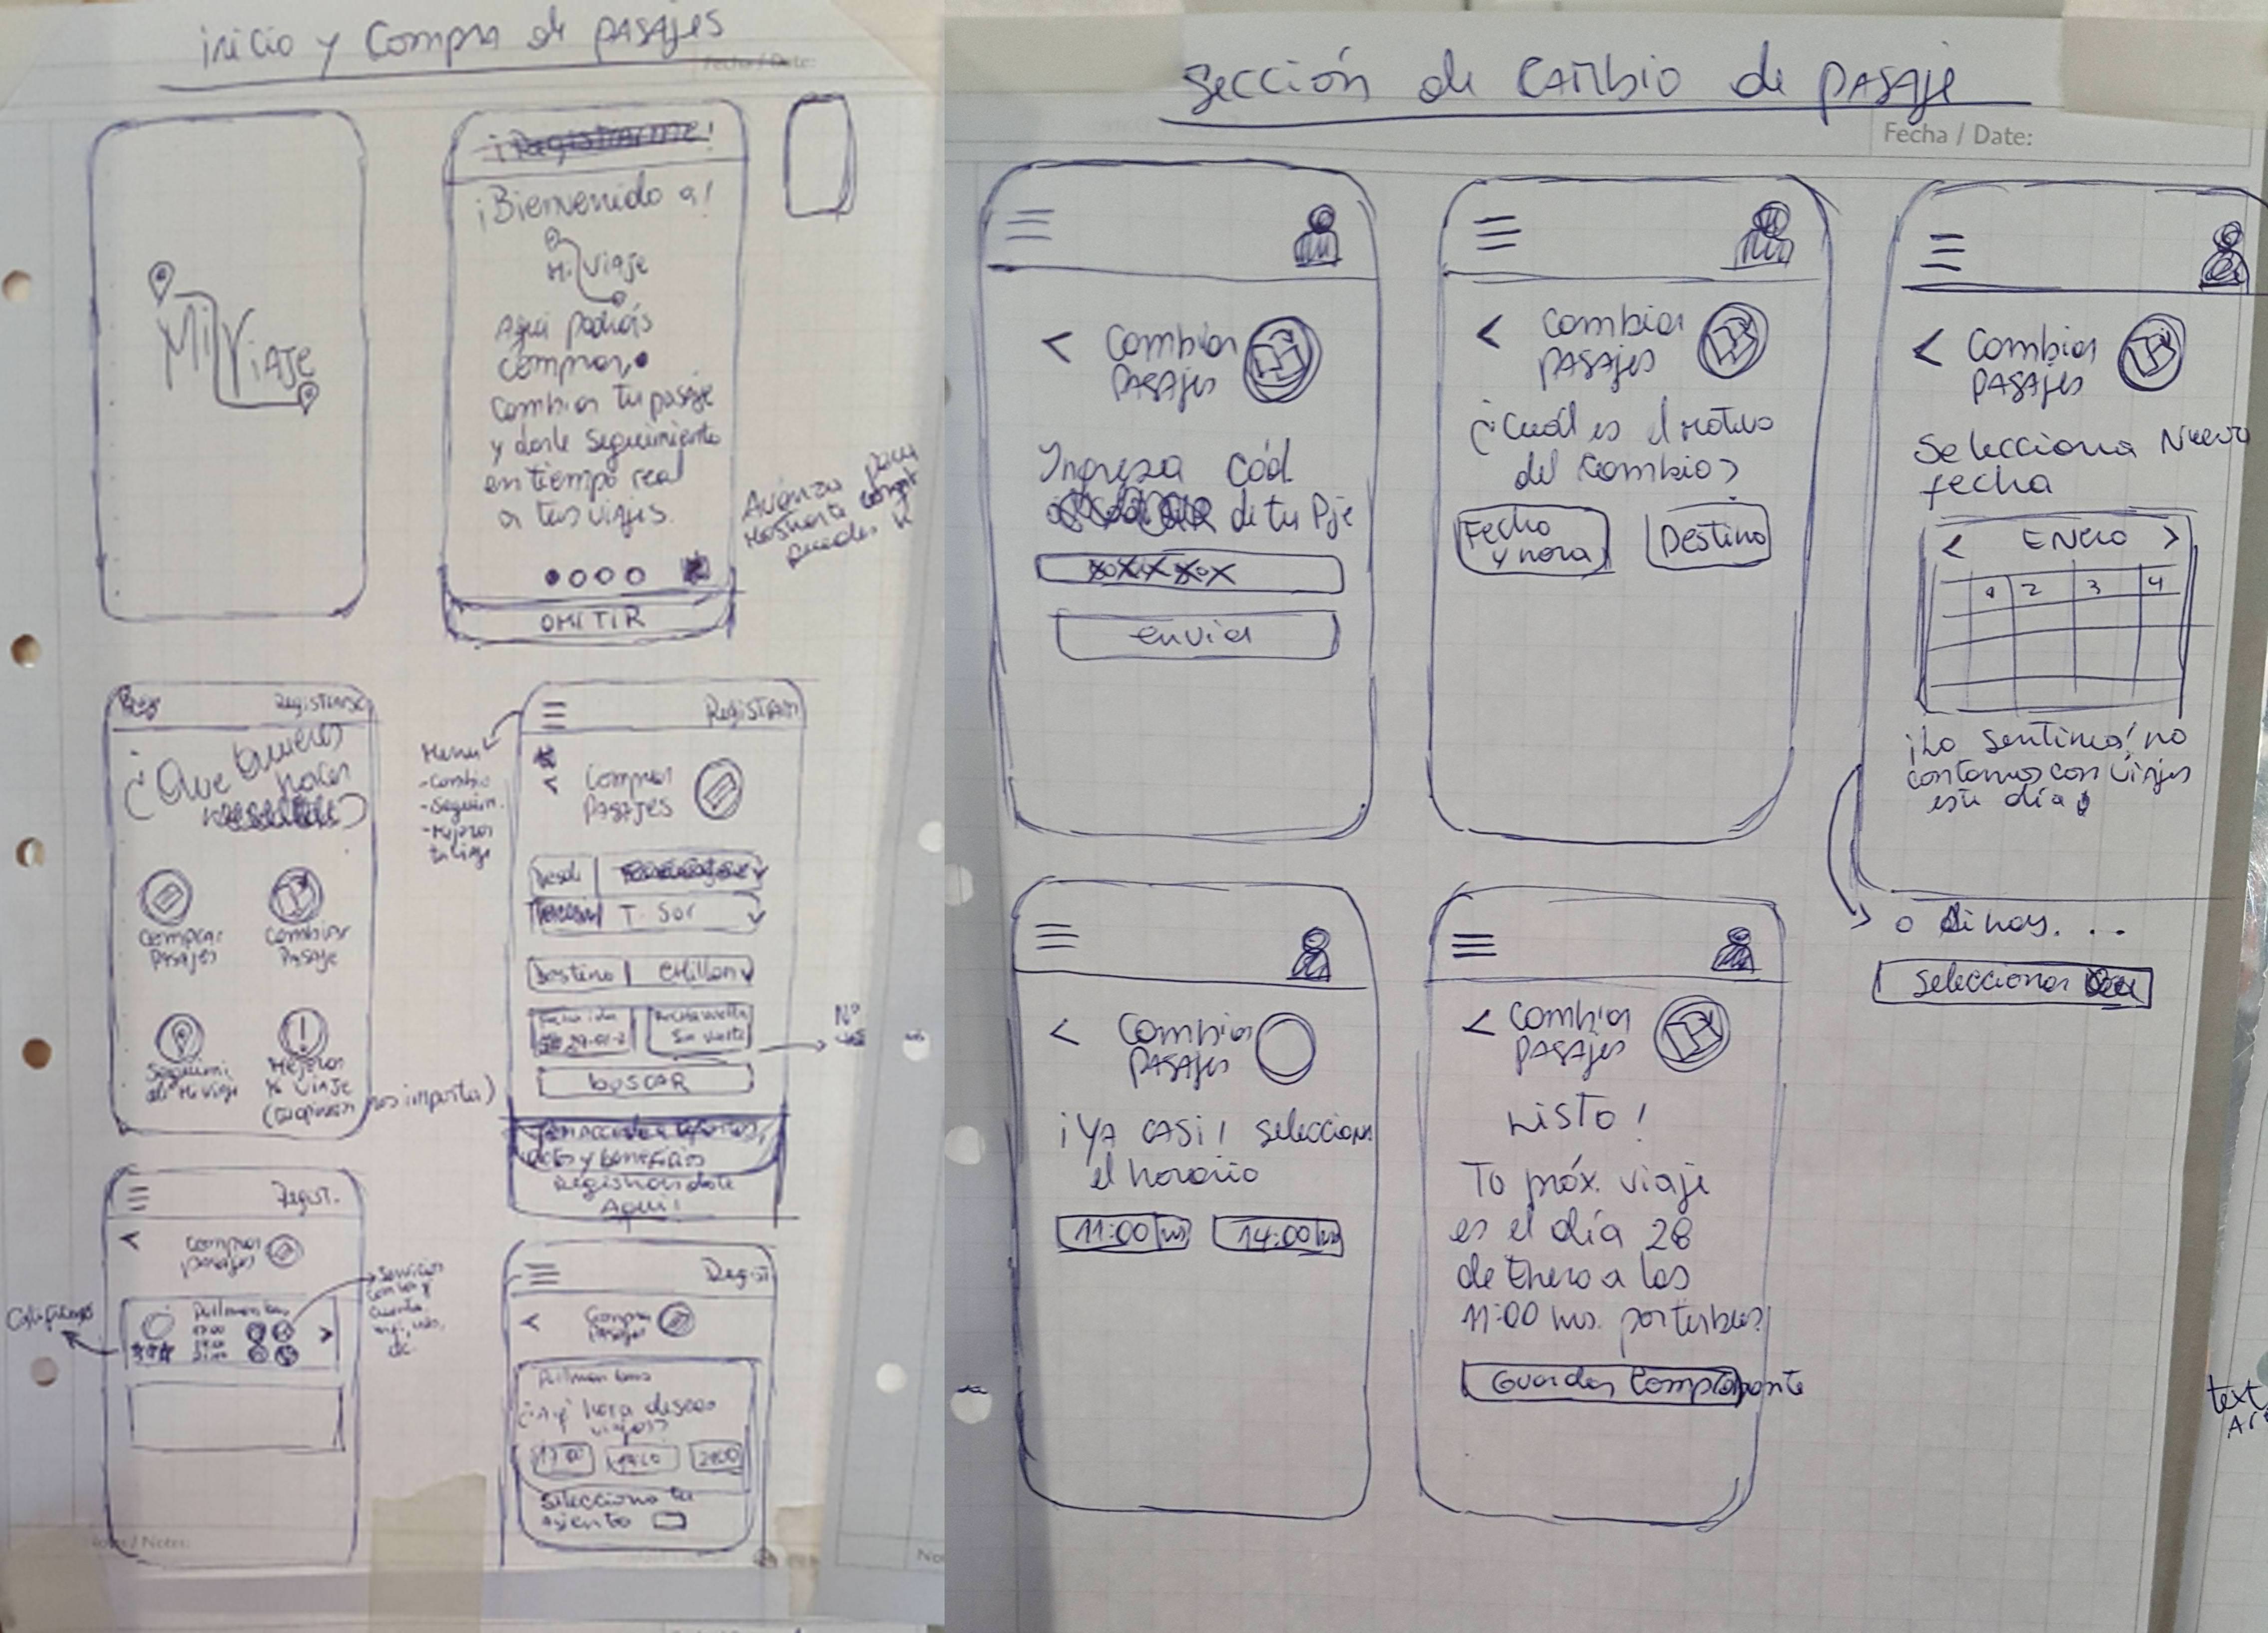 inicio y Compra de pasajes
Fecha / Date:
Mi Viaje
¡Registrarme!
¡Bienvenido a!
Mi Viaje
Aquí podrás
comprar,
cambiar tu pasaje
y darle seguimiento
en tiempo real
a tus viajes.
OMITIR
Avanza para
Registrarse
¿Que quieres
hacer
Comprar
Pasajes
Cambiar
Pasaje
Seguimi
de Mi viaje
Mejora
tu viaje
(tu opinion nos importa)
Menú
-Cambio
-Seguim.
-Mejora
tu viaje
Registrar
<
Comprar
Pasajes
Desde
Terminal
T. Sur
Destino
Chillan
Fecha ida
Sin vuelta
Nº
buscar
y beneficios
Registrandote
Aquí!
Regist.
<
Comprar
pasajes
Pullman bus
>
Servicios
Regist
<
Compra
Pasajes
Pullman bus
¿A qué hora deseas
viajar?
17:00
19:00
21:00
Selecciona tu
Asiento
Notes / Notes:
Sección de cambio de pasaje
Fecha / Date:
<
Cambiar
pasajes
Ingresa Cód
de tu Pje
xxxxxx
enviar
<
Cambiar
pasajes
¿Cuál es el motivo
del cambio?
Fecha
y hora
Destino
<
Cambiar
pasajes
Selecciona Nueva
fecha
< Enero >
1 2 3 4
¡Lo sentimos! no
contamos con viajes
este día
o si hay. . .
Seleccionar
<
Cambiar
pasajes
¡YA CASI! selecciona
el horario
11:00 hrs
14:00 hrs
<
Cambiar
pasajes
Listo!
Tu próx. viaje
es el día 28
de Enero a las
11:00 hrs. por turbus!
Guardar
text